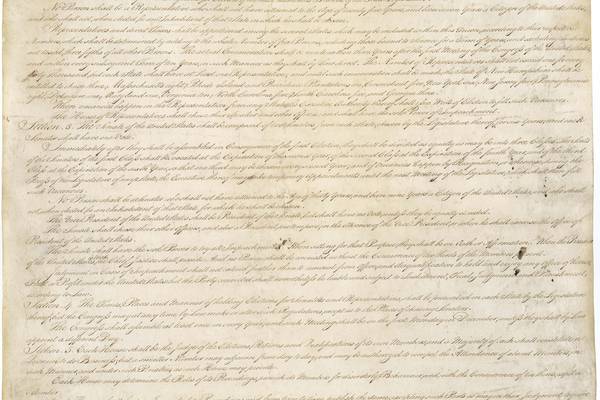 No Person shall be a Representative who shall not have attained to the Age of twenty five Years, and been seven Years a Citizen of the United States,
and who shall not, when elected, be an Inhabitant of that State in which he shall be chosen.
Representatives and direct Taxes shall be apportioned among the several States which may be included within this Union, according to their respective
Numbers, which shall be determined by adding to the whole Number of free Persons, including those bound to Service for a Term of Years, and excluding Indians
not taxed, three fifths of all other Persons. The actual Enumeration shall be made within three Years after the first Meeting of the Congress of the United States,
and within every subsequent Term of ten Years, in such Manner as they shall by Law direct. The Number of Representatives shall not exceed one for every
thirty Thousand, but each State shall have at Least one Representative; and until such enumeration shall be made, the State of New Hampshire shall be
entitled to chuse three,
eight,
When vacancies happen in the Representation from any State, the Executive Authority thereof shall issue Writs of Election to fill such Vacancies.
The House of Representatives shall chuse their Speaker and other Officers; and shall have the sole Power of Impeachment.
Section. 3. The Senate of the United States shall be composed of two Senators from each State, chosen by the Legislature thereof, for six Years; and each
Senator shall have one Vote.
Immediately after they shall be assembled in Consequence of the first Election, they shall be divided as equally as may be into three Classes. The Seats
of the Senators of the first Class shall be vacated at the Expiration of the second Year, of the second Class at the Expiration of the fourth Year, and of the third
Class at the Expiration of the sixth Year, so that one third may be chosen every second Year; and if Vacancies happen by Resignation, or otherwise, during the
Recess of the Legislature of any State, the Executive thereof may make temporary Appointments until the next Meeting of the Legislature, which shall then fill
such Vacancies.
No Person shall be a Senator who shall not have attained to the Age of thirty Years, and been nine Years a Citizen of the United States, and who shall
not, when elected, be an Inhabitant of that State for which he shall be chosen.
The Vice President of the United States shall be President of the Senate, but shall have no Vote, unless they be equally divided.
The Senate shall chuse their other Officers, and also a President pro tempore, in the Absence of the Vice President, or when he shall exercise the Office of
President of the United States.
The Senate shall have the sole Power to try all Impeachments. When sitting for that Purpose, they shall be on Oath or Affirmation. When the President
of the United States is tried, the Chief Justice shall preside: And no Person shall be convicted without the Concurrence of two thirds of the Members present.
Judgment in Cases of Impeachment shall not extend further than to removal from Office, and disqualification to hold and enjoy any Office of honor,
Trust or Profit under the United States: but the Party convicted shall nevertheless be liable and subject to Indictment, Trial, Judgment and Punishment,
according to Law.
Section. 4. The Times, Places and Manner of holding Elections for Senators and Representatives, shall be prescribed in each State by the Legislature
thereof; but the Congress may at any time by Law make or alter such Regulations, except as to the Places of chusing Senators.
The Congress shall assemble at least once in every Year, and such Meeting shall be on the first Monday in December, unless they shall by Law
appoint a different Day.
Section. 5. Each House shall be the Judge of the Elections, Returns and Qualifications of its own Members, and a Majority of each shall constitute a
Quorum to do Business; but a smaller Number may adjourn from day to day, and may be authorized to compel the Attendance of absent Members, in
such Manner, and under such Penalties as each House may provide.
Each House may determine the Rules of its Proceedings, punish its Members for disorderly Behaviour, and, with the Concurrence of two thirds, expel a
Member.